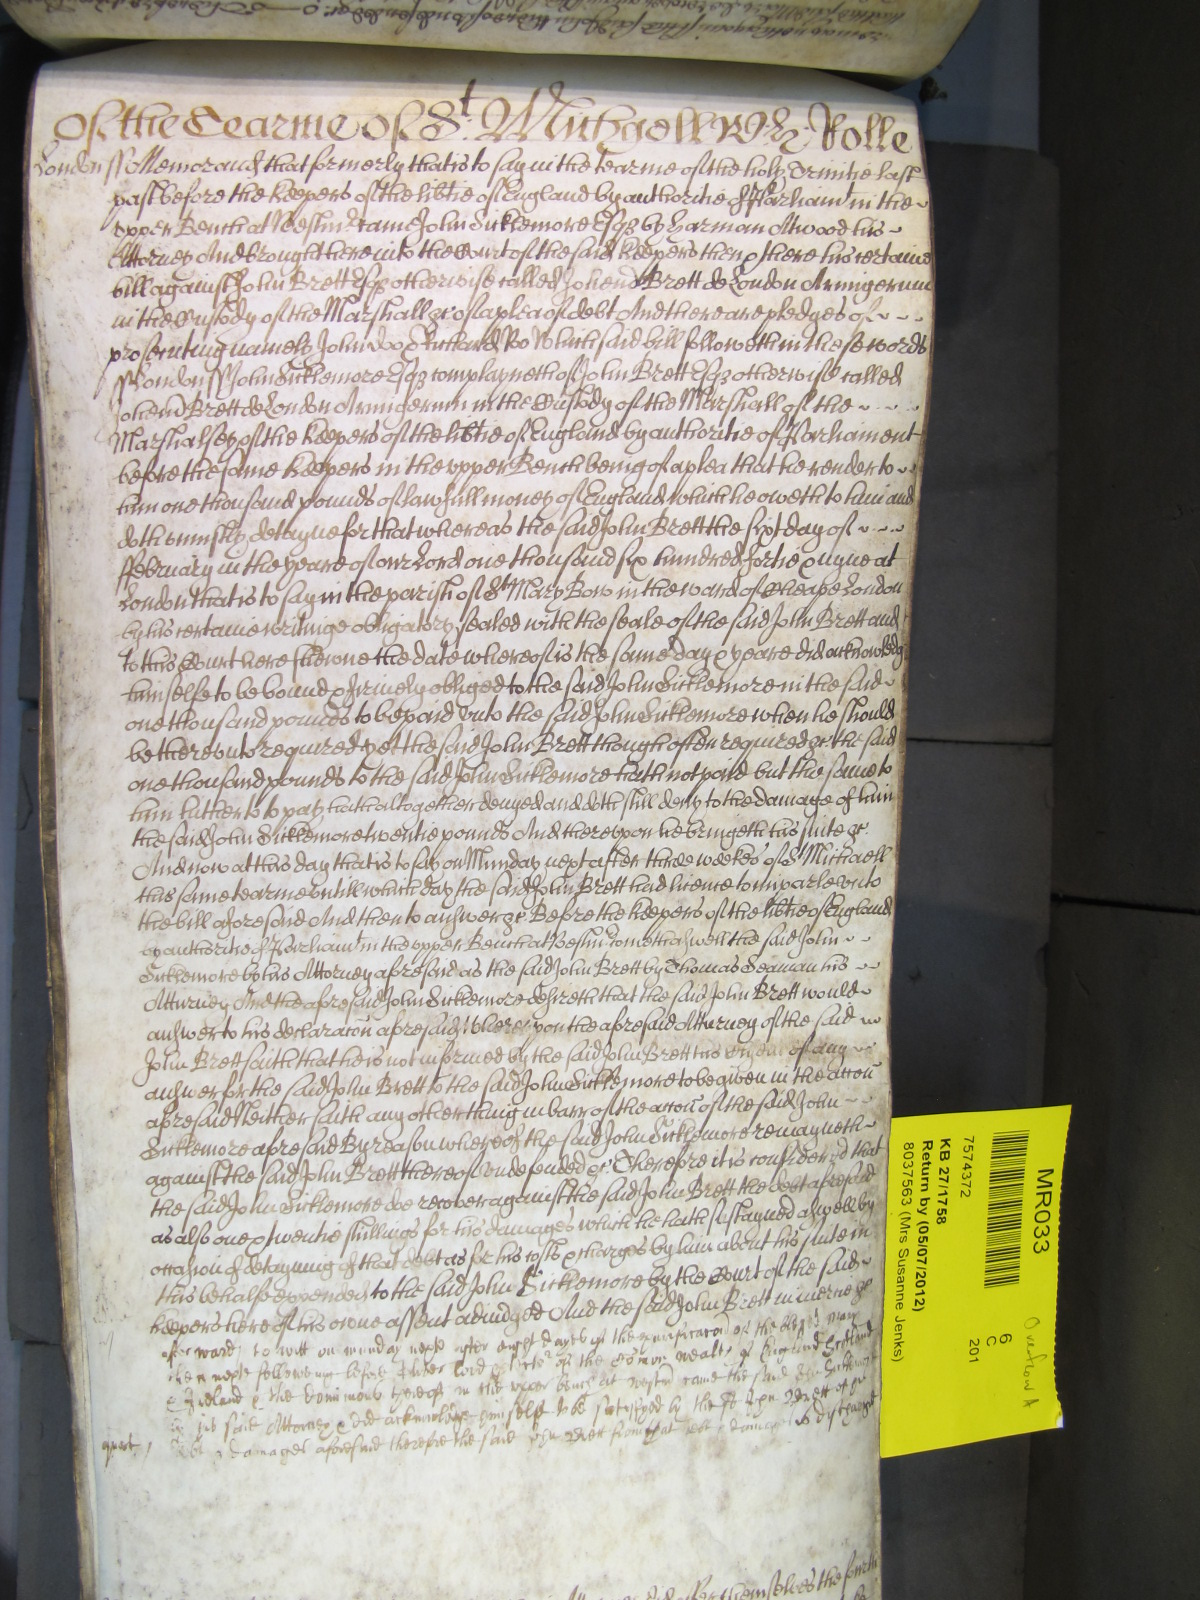 Of the Tearme Of St. Michaell Rolle
London ss Memorand that formerly that is to say in the tearme of the holy Trinitie last
past before the Keepers of the libtie of England by authoritie of Parliamt in the
vpper Bench at Westmr came John Sicklemore Esqz by Harman Atwood his
Attorney And brought here into the Court of the said Keepers then & there his certaine
bill against John Brett Esqz otherwise called Johem Brett de London Armigerum
in the Custody of the Marshall &c of a plea of debt And there are pledges of
prosecuting namely John Doo & Richard Roo Which said bill followeth in these words
ss London ss John Sicklemore Esqz complayneth of John Brett Esqz otherwise called
Johem Brett de London Armigerum in the Custody of the Marshall of the
Marshalsey of the Keepers of the libtie of England by authoritie of Parliament
before the same Keepers in the vpper Bench being of a plea that he render to
him one thousand pounds of lawfull money of England which he oweth to him and
doth uniustly detayne for that whereas the said John Brett the sixt day of
ffebruary in the yeare of our Lord one thousand six hundred fortie & nyne at
London that is to say in the parish of St Mary Bow in the ward of Cheape London
by his certaine writinge obligatory sealed with the seale of the said John Brett and
to this Court here shewne the date whereof is the same day & yeare did acknowledg
himselfe to be bound & firmely obliged to the said John Sicklemore in the said
one thousand pounds to be paid vnto the said John Sicklemore when he should
be therevnto required yet the said John Brett though often required &c the said
one thousand pounds to the said John Sicklemore hath not paid but the same to
him hitherto to pay hath altogether denyed and doth still deny to the damage of him
the said John Sicklemore twentie pounds And therevpon he bringeth his suite &c
And now at this day that is to say on Munday next after three weekes of St Michaell
this same tearme vntill which day the said John Brett had licence to imparle vnto
the bill aforesaid And then to answer &c Before the Keepers of the libtie of England
by authoritie of Parliamt in the vpper Bench at Westmr cometh aswell the said John
Sicklemore by his Attorney aforesaid as the said John Brett by Thomas Seaman his
Atturney And the aforesaid John Sicklemore desireth that the said John Brett would
answer to his declaracon aforesaid Wherevpon the aforesaid Atturney of the said
John Brett saith that he is not informed by the said John Brett his of any
answer for the said John Brett to the said John Sicklemore to be given in the accon
aforesaid Neither saith any other thing in barr of the accon of the said John
Sicklemore aforesaid By reason whereof the said John Sicklemore remayneth
against the said John Brett thereof vndefended &c Therefore it is considered that
the said John Sicklemore doe recover against the said John Brett the debt aforesaid
as also one & twentie shillings for his damages which he hath sustayned aswell by
occasion of detayning of that debt as for his costs & charges by him about his suite in
this behalfe expended to the said John Sicklemore by the Court of the said
keepers here of his owne assent adiudged And the said John Brett in mercie &c
afterwards to witt on munday next after eight dayes of the purificacon of the blessed Mary
then next followeing before Oliver Lord Protector of the Comon wealth of England Scotland
& Ireland & the Dominions thereof in the vpper bench at Westmr came the said John Sicklemore
by his said Attorney & did acknowledge himselfe to be satisfyed by the sd John Brett of the
debt & damages aforesaid therefore the said John Brett from that debt & damages is discharged
quiet
MR033
6
C
201
7574372
KB 27/1758
Return by (05/07/2012)
8037563 (Mrs Susanne Jenks)
Overflow A
themselves the fourth